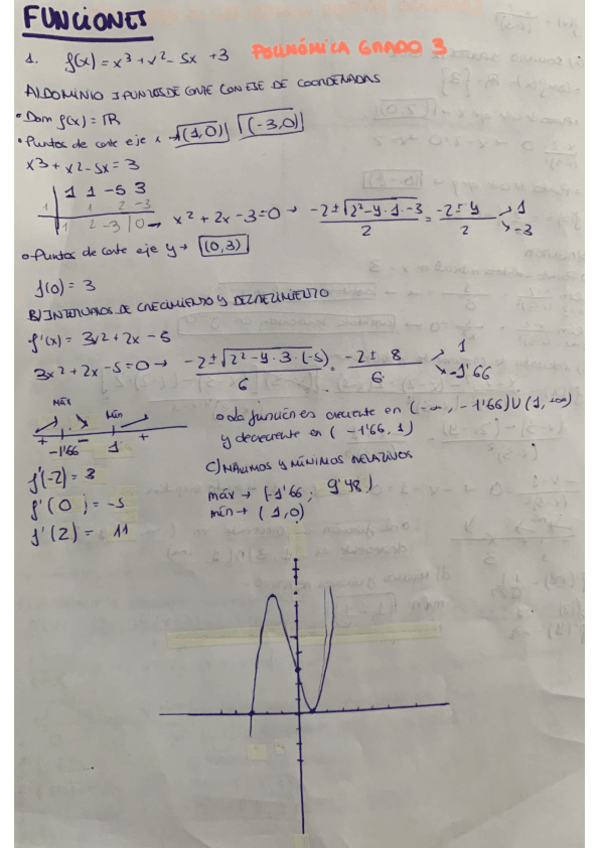 FUNCIONES
1. f(x) = x³ + x² - 5x + 3 POLINÓMICA GRADO 3
A) DOMINIO Y PUNTOS DE CORTE CON EJE DE COORDENADAS
• Dom f(x) = ℝ
• Puntos de corte eje x → (1,0) (-3,0)
x³ + x² - 5x = 3
1 1 -5 3
1 1 2 -3
1 2 -3 0 → x² + 2x - 3 = 0 → (-2 ± √(2² - 4 · 1 · -3))/2 = (-2 ± 4)/2 → 1
→ -3
• Puntos de corte eje y → (0,3)
f(0) = 3
B) INTERVALOS DE CRECIMIENTO Y DECRECIMIENTO
f'(x) = 3x² + 2x - 5
3x² + 2x - 5 = 0 → (-2 ± √(2² - 4 · 3 · (-5)))/6 = (-2 ± 8)/6 → 1
→ -1'66
MÁX MÍN
+ -1'66 - 1 +
• La función es creciente en (-∞, -1'66) U (1, +∞)
y decreciente en (-1'66, 1)
C) MÁXIMOS Y MÍNIMOS RELATIVOS
máx → (-1'66; 9'48)
mín → (1,0)
f'(-2) = 3
f'(0) = -5
f'(2) = 11